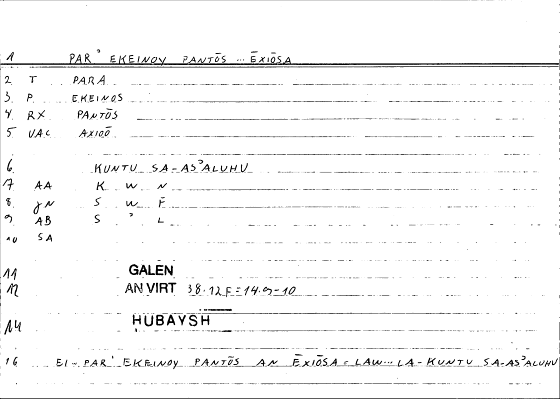 1 PAR' EKEINOY PANTŌS ... ĒXIŌSA
2 T PARA
3 P. EKEINOS
4 RX PANTŌS
5 VAC AXIOŌ
6. KUNTU SA-AS'ALUHU
17 AA K W N
8. JN S W F
9 AB S ' L
10 SA
11 GALEN
12 AN VIRT 38.12 F = 14.9-10
14 HUBAYSH
16 EI - PAR' EKEINOY PANTŌS AN ĒXIŌSA = LAW... LA-KUNTU SA-AS'ALUHU